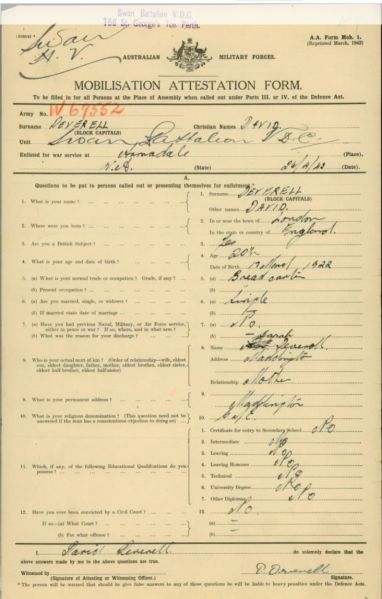 Swan Battalion V.D.C.
156 St. George's Tce. Perth.
Swan
A.A. Form Mob. 1.
(Reprinted March, 1942)
AUSTRALIAN MILITARY FORCES.
MOBILISATION ATTESTATION FORM.
To be filled in for all Persons at the Place of Assembly when called out under Parts III. or IV. of the Defence Act.
Army No. W 67552
Surname DEVERELL Christian Names DAVID
(BLOCK CAPITALS)
Unit Swan Battalion V.D.C.
Enlisted for war service at Armadale (Place).
W.A. (State) (Date).
A.
Questions to be put to persons called out or presenting themselves for enlistment.
1. What is your name? 1. Surname DEVERELL
(BLOCK CAPITALS)
Other names DAVID.
2. Where were you born? 2. In or near the town of London
In the state or country of England.
3. Are you a British Subject? 3. Yes
4. What is your age and date of birth? 4. Age
Date of Birth 1922
5. (a) What is your normal trade or occupation? Grade, if any? 5. (a) Bread carter
(b) Present occupation? (b)
6. (a) Are you married, single, or widower? 6. (a) Single
(b) If married state date of marriage (b)
7. (a) Have you had previous Naval, Military, or Air Force service, either in peace or war? If so, where, and in what arm? 7. (a) No.
(b) What was the reason for discharge? (b)
8. Who is your actual next of kin? (Order of relationship—wife, eldest son, eldest daughter, father, mother, eldest brother, eldest sister, eldest half-brother, eldest half-sister) 8. Name Sarah Deverell
Address Maddington
Relationship Mother
9. What is your permanent address? 9. Maddington
10. What is your religious denomination? (This question need not be answered if the man has a conscientious objection to doing so) 10. C of E.
11. Which, if any, of the following Educational Qualifications do you possess? 1. Certificate for entry to Secondary School No
2. Intermediate No
3. Leaving No
4. Leaving Honours No
5. Technical No
6. University Degree No
7. Other Diplomas No
12. Have you ever been convicted by a Civil Court? 12. No.
If so—(a) What Court? (a) —
(b) For what offence? (b) —
I David Deverell do solemnly declare that the above answers made by me to the above questions are true.
Witnessed by D. Deverell
(Signature of Attesting or Witnessing Officer.) (Signature.)
* The person will be warned that should he give false answers to any of these questions he will be liable to heavy penalties under the Defence Act.